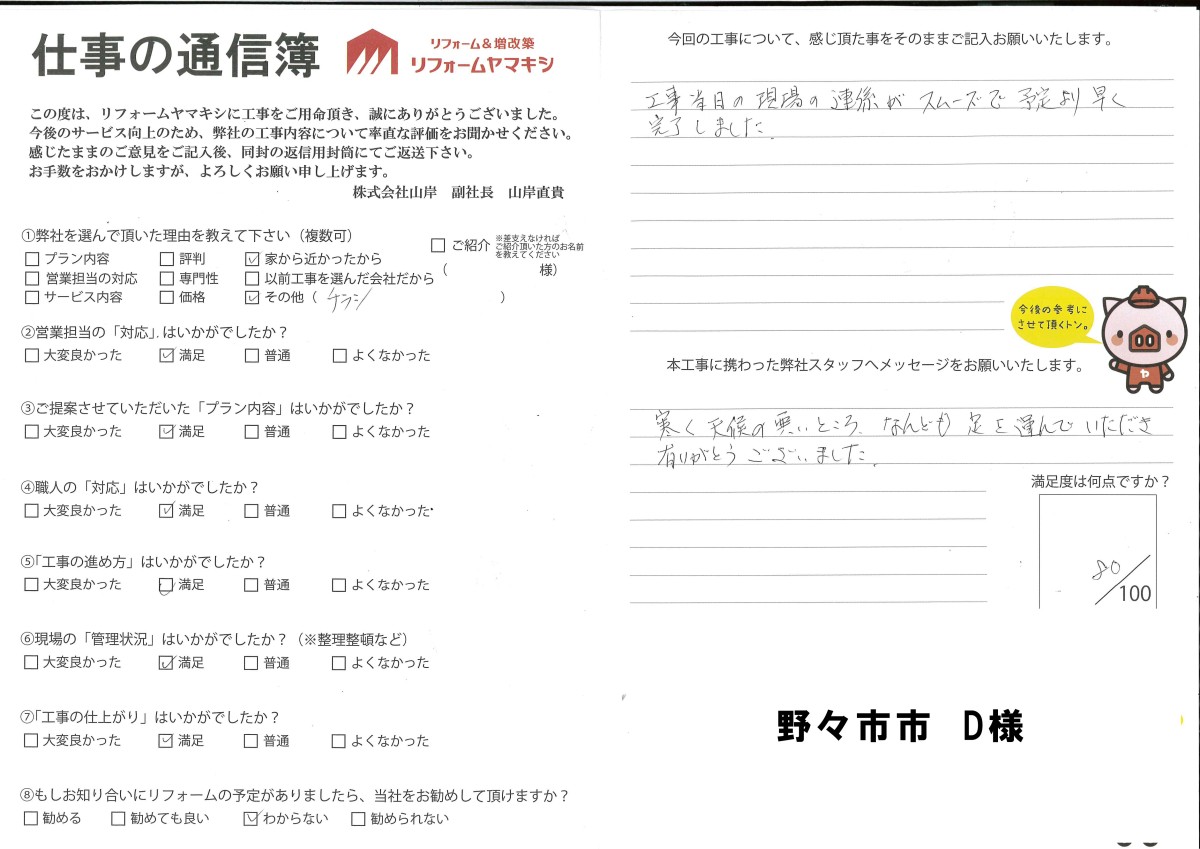 仕事の通信簿
リフォーム&増改築
リフォームヤマキシ
この度は、リフォームヤマキシに工事をご用命頂き、誠にありがとうございました。
今後のサービス向上のため、弊社の工事内容について率直な評価をお聞かせください。
感じたままのご意見をご記入後、同封の返信用封筒にてご返送下さい。
お手数をおかけしますが、よろしくお願い申し上げます。
株式会社山岸 副社長 山岸直貴
①弊社を選んで頂いた理由を教えて下さい（複数可）
□ ご紹介 ※差支えなければ
ご紹介頂いた方のお名前
を教えてください
（ 様）
□ プラン内容 □ 評判 ☑ 家から近かったから
□ 営業担当の対応 □ 専門性 □ 以前工事を選んだ会社だから
□ サービス内容 □ 価格 ☑ その他（ チラシ ）
②営業担当の「対応」はいかがでしたか？
□ 大変良かった ☑ 満足 □ 普通 □ よくなかった
③ご提案させていただいた「プラン内容」はいかがでしたか？
□ 大変良かった ☑ 満足 □ 普通 □ よくなかった
④職人の「対応」はいかがでしたか？
□ 大変良かった ☑ 満足 □ 普通 □ よくなかった
⑤「工事の進め方」はいかがでしたか？
□ 大変良かった ☑ 満足 □ 普通 □ よくなかった
⑥現場の「管理状況」はいかがでしたか？（※整理整頓など）
□ 大変良かった ☑ 満足 □ 普通 □ よくなかった
⑦「工事の仕上がり」はいかがでしたか？
□ 大変良かった ☑ 満足 □ 普通 □ よくなかった
⑧もしお知り合いにリフォームの予定がありましたら、当社をお勧めして頂けますか？
□ 勧める □ 勧めても良い ☑ わからない □ 勧められない
今回の工事について、感じ頂た事をそのままご記入お願いいたします。
工事当日の現場の連係がスムーズで予定より早く
完了しました。
今後の参考に
させて頂くトン。
ヤ
本工事に携わった弊社スタッフへメッセージをお願いいたします。
寒く天候の悪いところ、なんども足を運んでいただき
有りがとうございました。
満足度は何点ですか？
80/100
野々市市 D様